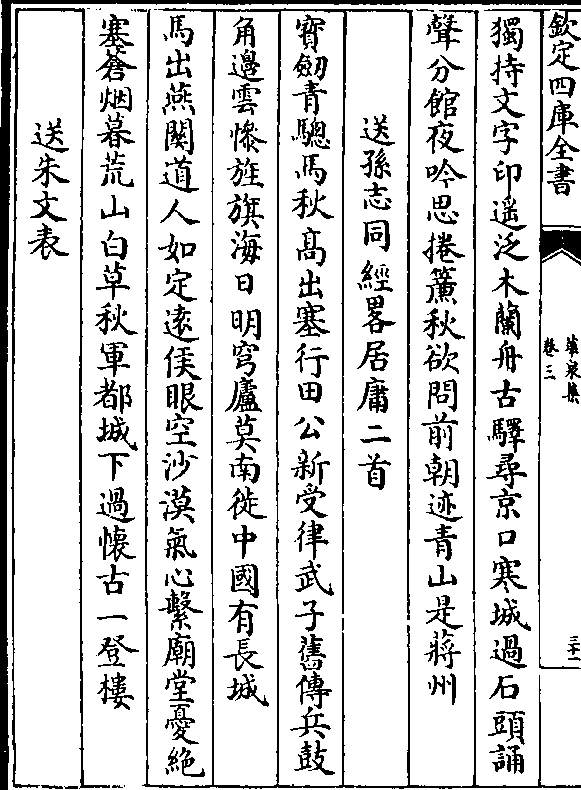 欽定四庫全書
卷三
三十一
獨持文字印遥泛木蘭舟古驛尋京口寒城過石頭誦
聲分館夜吟思捲簾秋欲問前朝迹青山是蔣州
送孫志同經畧居庸二首
寳劒青驄馬秋髙出塞行田公新受律武子舊傳兵鼓
角邉雲慘旌旗海日明穹廬莫南徙中國有長城
馬出燕闗道人如定逺侯眼空沙漠氣心繫廟堂憂絶
塞蒼烟暮荒山白草秋軍都城下過懐古一登樓
送朱文表